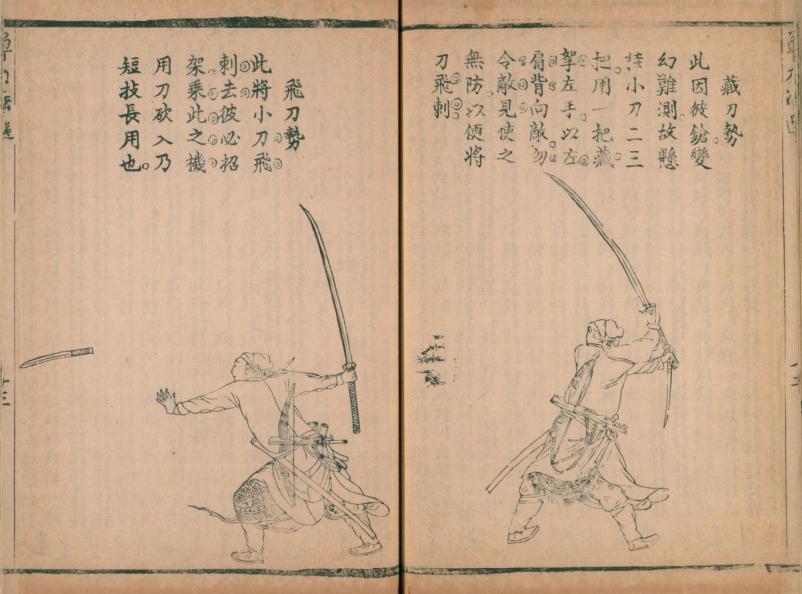 藏刀勢
此因彼鎗變
幻難測故懸
挂小刀二三
把用一把藏
挐左手以左
肩背向敵勿
令敵見使之
無防以便將
刀飛刺
飛刀勢
此將小刀飛
刺去彼必招
架乘此之機
用刀砍入乃
短技長用也。
單刀法選
十三